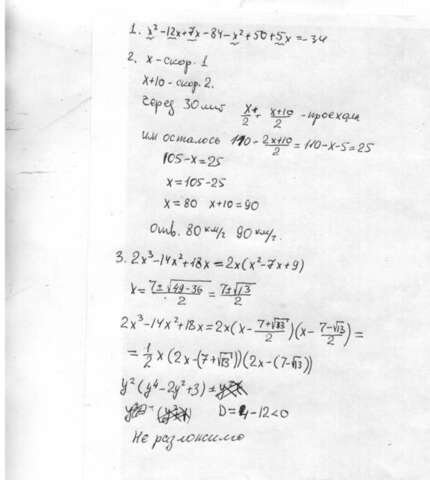 1. x² - 12x + 7x - 84 - x² + 50 + 5x = -34
2. x - скор. 1
x+10 - скор. 2.
Через 30 мин x/2 + (x+10)/2 - проехали
им осталось 110 - (2x+10)/2 = 110 - x - 5 = 25
105 - x = 25
x = 105 - 25
x = 80 x+10 = 90
Отв. 80 км/г 90 км/г.
3. 2x³ - 14x² + 18x = 2x(x² - 7x + 9)
x = (7 ± √(49-36))/2 = (7 ± √13)/2
2x³ - 14x² + 18x = 2x(x - (7+√13)/2)(x - (7-√13)/2) =
= 1/2 x (2x - (7+√13))(2x - (7-√13))
y²(y⁴ - 2y² + 3)
D = 4 - 12 < 0
Не разложимо